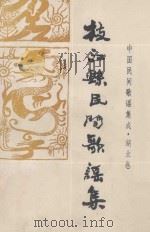 枝江县民间歌谣集
中国民间歌谣集成·湖北卷